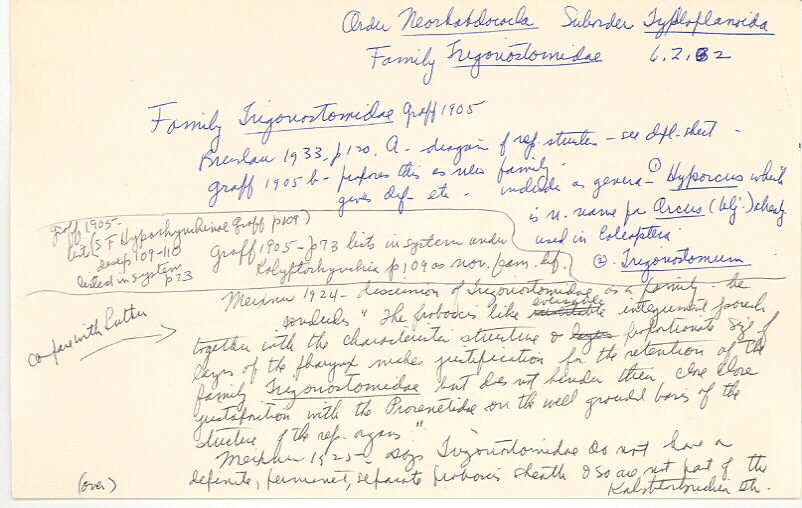 Order Neorhabdocoela Suborder Typhloplanoida
Family Trigonostomidae 6.2.32
Family Trigonostomidae Graff 1905
Bresslau 1933. p120. A- diagram of rep. structures - see dpl. sheet -
Graff 1905 b - proposes this as new family.
gives def. etc. - includes as genera - ① Hyporcus which
is n. name for Arcus ( ) already
used in Coleoptera
② Trigonostomum
Graff 1905-
lists (SF Hyporhynchinae Graff p109)
descp 109-110
listed in system
p73
Graff 1905 - p73 lists in system under
Kalyptorhynchia p109 as nov. fam. def.
Meixner 1924 - discussion of Trigonostomidae as a family - he
concludes "The proboscis like eversible integument pouch
together with the characteristic structure & proportionate size of
layers of the pharynx makes justification for the retention of the
family Trigonostomidae but does not hinder their close
juxtaposition with the Proxenetidae on the well grounded basis of the
structure of the rep. organs"
compare with Luther
Meixner 1925 - says Trigonostomidae do not have a
definite, permanent, separate proboscis sheath & so are not part of the
Kalyptorhynchia etc.
(over)